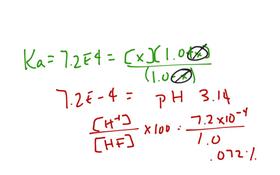 Ka = 7.2E4 = [x](1.0+x)/(1.0-x)
7.2E-4 = pH 3.14
[H+]/[HF] x 100 = 7.2x10^-4/1.0
.072%